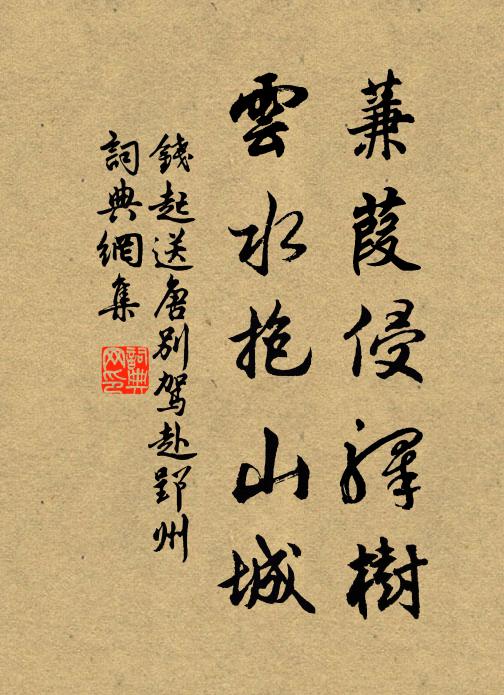 蒹葭侵驛樹
雲水抱山城
錢起送唐別駕赴郢州
詞典網集
詞典网印